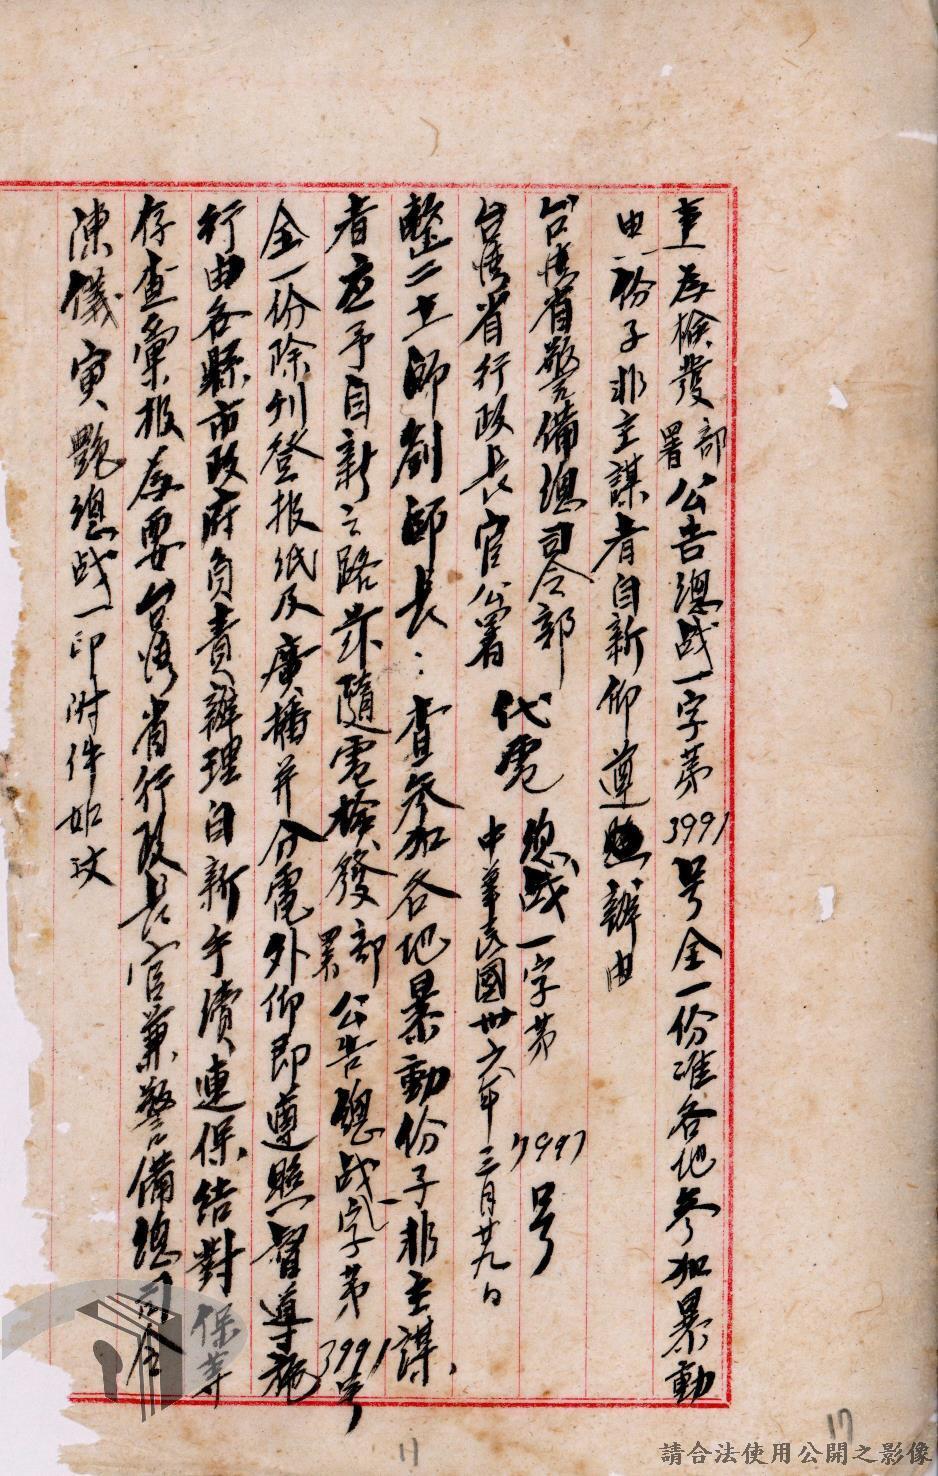 事 為檢發部署公告總战一字第3991号全一份准各地参加暴動
由 份子非主謀者自新仰遵照辦由
台灣省警備總司令部
台灣省行政長官公署 代電 總战一字第7997号
中華民國卅六年三月廿九日
整二十一師劉師長：查参加各地暴動份子非主謀
者应予自新之路茲隨電檢發部署公告總战一字第3991号
全一份除刊登报纸及廣播并分電外仰即遵照督導施
行由各縣市政府負責辦理自新手續連保結對保等
存查彙报為要台灣省行政長官兼警備總司令
陳儀寅艷總战一印附件如文
17
11
請合法使用公開之影像